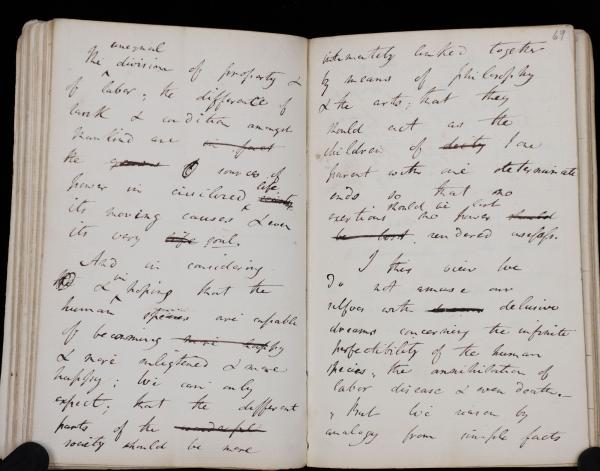 unequal
The division of property &
of labor, the difference of
rank & condition amongst
mankind are in fact
the sources of
power in civilized life
its moving causes & even
its very life soul.
And in considering
& in hoping that the
human species are capable
of becoming more happy
& more enlightened & more
happy; We can only
expect; that the different
parts of the
society should be more
69
intimately linked together
by means of philosophy
& the arts; that they
should act as the
children of I one
parent with one determinate
ends so that no
should be lost
exertions no power should
be lost, rendered useless.
I this view we
do not amuse our
selves with delusive
dreams concerning the infinite
perfectibility of the human
species, the annihilation of
labor disease & even death,
But we reason by
analogy from simple facts